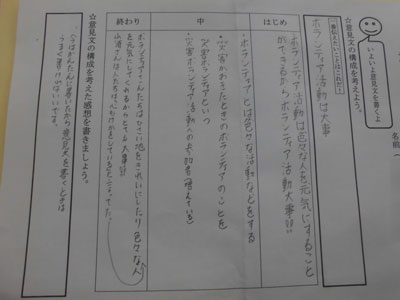 いよいよ意見文を書くよ
名前
☆意見文の構成を考えよう。
一番伝えたいことはこれだ！
ボランティア活動は大事
はじめ
ボランティア活動は色々な人を元気にすること
ができるからボランティア活動大事！！
・ボランティアとは色々な活動などをする
中
・災害がおきたときのボランティアのことを
災害ボランティアという
・災害ボランティア活動への参加者(増えている)
終わり
ボランティアでくんだ人はきたない地をきれいにしたり色々な人
を元気にしてくれるからとても大事！！
☆意見文の構成を考えた感想を書きましょう。
今はかんたんに書いたから意見文を書くときは
うまく書ければいいです。